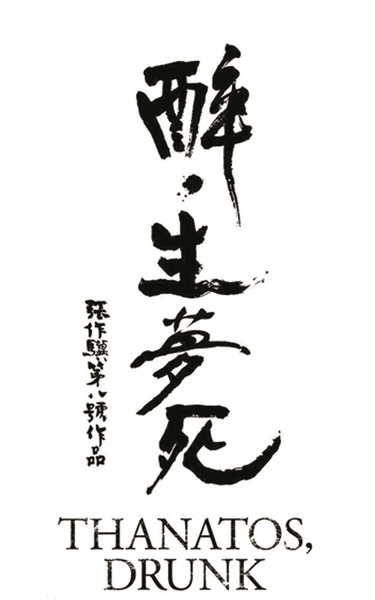 醉・生夢死
張作驥第八號作品
THANATOS,
DRUNK